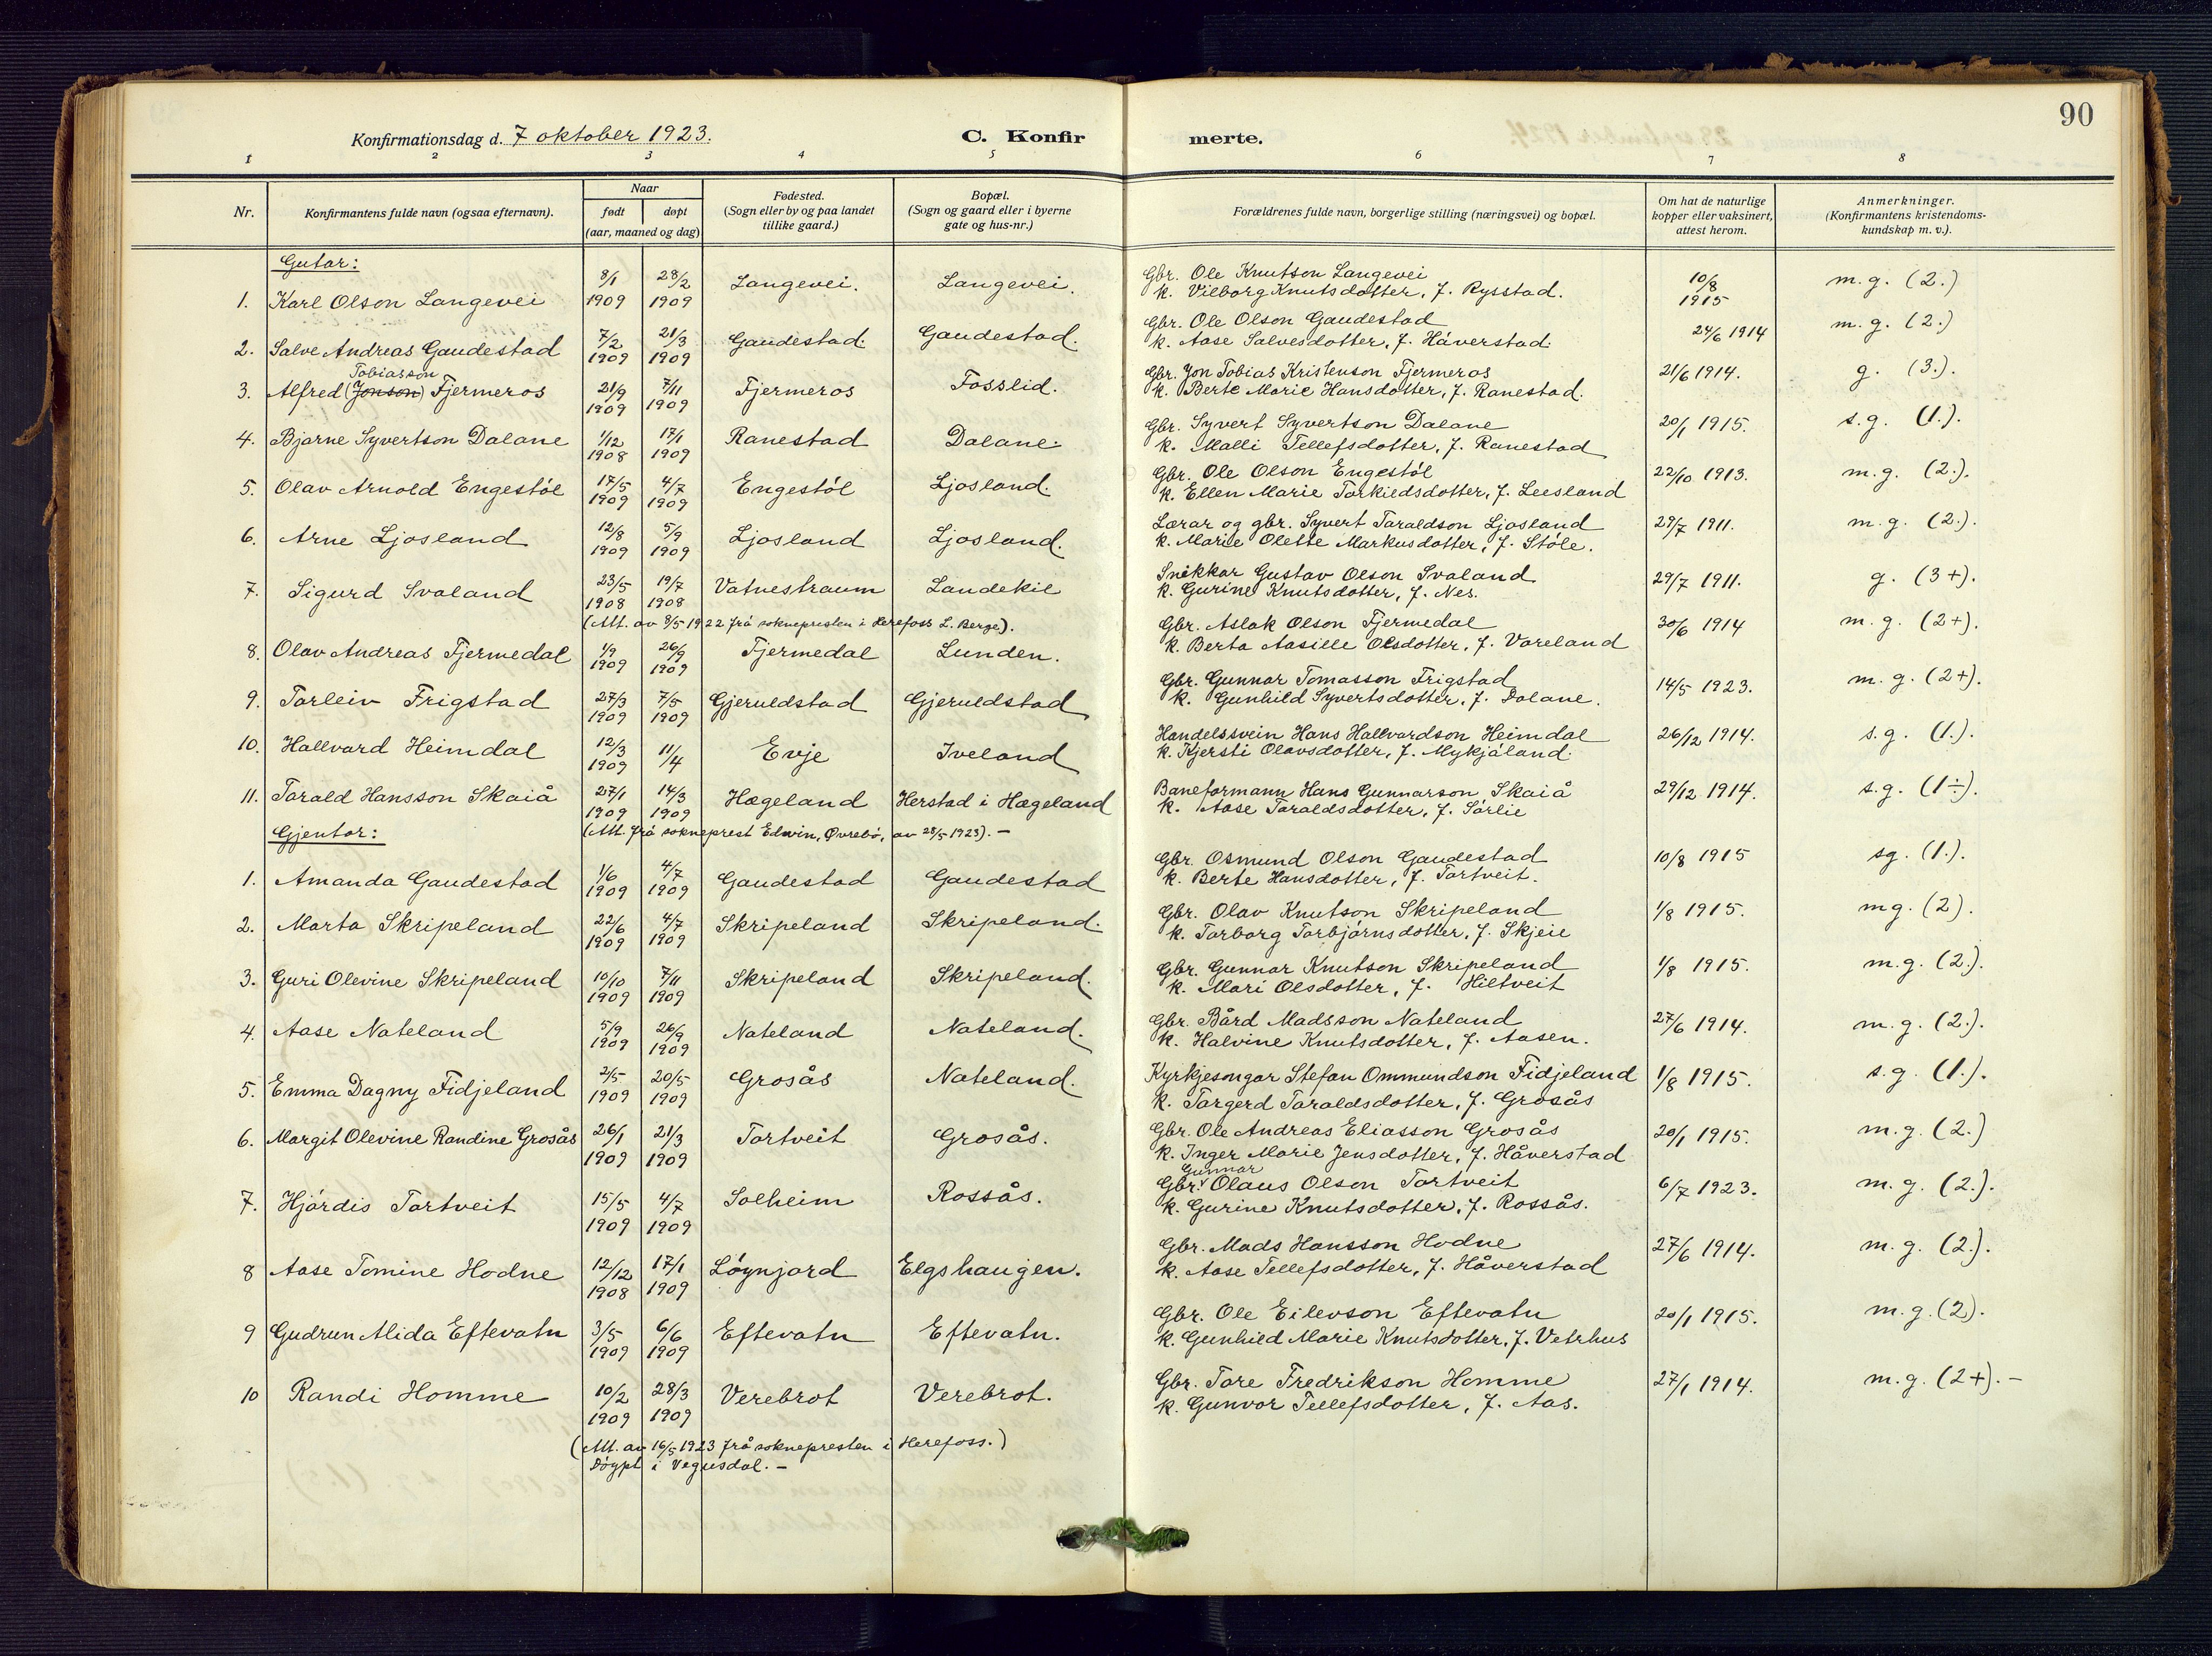 90
Konfirmationsdag d. 7 oktober 1923. C. Konfirmerte.
1 2 3 4 5 6 7 8
Nr. Konfirmantens fulde navn (ogsaa efternavn). Naar født døpt (aar, maaned og dag) Fødested. (Sogn eller by og paa landet tillike gaard.) Bopæl. (Sogn og gaard eller i byerne gate og hus-nr.) Forældrenes fulde navn, borgerlige stilling (næringsvei) og bopæl. Om hat de naturlige kopper eller vaksinert, attest herom. Anmerkninger. (Konfirmantens kristendoms-kundskap m. v.).
Gutar:
1. Karl Olson Langevei 8/1 1909 28/2 1909 Langevei. Langevei. Gbr. Ole Knutson Langevei 10/8 1915 m.g. (2.)
k. Vilborg Knutsdotter, f. Rysstad.
2. Salve Andreas Gaudestad 7/2 1909 21/3 1909 Gaudestad. Gaudestad. Gbr. Ole Olson Gaudestad 24/6 1914 m.g. (2.)
k. Aase Salvesdotter, f. Håverstad.
Tobiasson
3. Alfred (Jonson) Fjermeros 21/9 1909 7/11 1909 Fjermeros Fosslid. Gbr. Jon Tobias Kristenson Fjermeros 21/6 1914. g. (3.).
k. Berte Marie Hansdotter, f. Ranestad.
4. Bjarne Syvertson Dalane 1/12 1908 17/1 1909 Ranestad Dalane. Gbr. Syvert Syvertson Dalane 20/1 1915. s.g. (1.).
k. Malli Tellefsdotter, f. Ranestad
5. Olav Arnold Engestöl 17/5 1909 4/7 1909 Engestöl Ljosland. Gbr. Ole Olson Engestöl 22/10 1913. m.g. (2.).
k. Ellen Marie Torkiedsdotter, f. Leesland
6. Arne Ljosland 12/8 1909 5/9 1909 Ljosland Ljosland. Lærar og gbr. Syvert Taraldson Ljosland 29/7 1911. m.g. (2.).
k. Marie Olette Markusdotter, f. Stöle.
7. Sigurd Svaland 23/5 1908 19/7 1908 Vatnestraum Landekil Snikkar Gustav Olson Svaland 29/7 1911. g. (3+).
k. Gurine Knutsdotter, f. Nes.
(Att. av 8/5 1922 frå soknepresten i Herefoss L. Berge).
8. Olav Andreas Fjermedal 1/9 1909 26/9 1909 Fjermedal Lunden. Gbr. Aslak Olson Fjermedal 30/6 1914 m.g. (2+).
k. Berta Aasille Olsdotter, f. Vareland
9. Torleiv Frigstad 27/3 1909 7/5 1909 Gjeruldstad Gjeruldstad Gbr. Gunnar Tomasson Frigstad 14/5 1923. m.g. (2+).
k. Gunhild Syvertsdotter, f. Dalane.
10. Hallvard Heimdal 12/3 1909 11/4 Evje Iveland Handelssvein Hans Hallvardson Heimdal 26/12 1914. s.g. (1.).
k. Kjersti Olavsdotter, f. Mykjåland.
11. Tarald Hansson Skaiå 27/1 1909 14/3 1909 Hægeland Herstad i Hægeland Baneformann Hans Gunnarson Skaiå 29/12 1914. s.g. (1÷).
k. Aase Taraldsdotter, f. Sörlie
(Att. frå sokneprest Edwin, Øvrebö, av 28/5 1923). –
Gjentor:
1. Amanda Gaudestad 1/6 1909 4/7 1909 Gaudestad Gaudestad Gbr. Osmund Olson Gaudestad 10/8 1915 sg. (1.).
k. Berte Hansdotter, f. Tortveit.
2. Marta Skripeland 22/6 1909 4/7 1909 Skripeland Skripeland. Gbr. Olav Knutson Skripeland 1/8 1915. mg. (2).
k. Torborg Torbjörnsdotter, f. Skjeie
3. Guri Olevine Skripeland 10/10 1909 7/11 1909 Skripeland Skripeland. Gbr. Gunnar Knutson Skripeland 1/8 1915. m.g. (2.).
k. Mari Olsdotter, f. Hiltveit
4. Aase Nateland 5/9 1909 26/9 1909 Nateland Nateland. Gbr. Bård Madsson Nateland 27/6 1914. m.g. (2.).
k. Halvine Knutsdotter, f. Aasen.
5. Emma Dagny Fidjeland 2/5 1909 20/5 1909 Grosås Nateland. Kyrkjesongar Stefan Ommundson Fidjeland 1/8 1915. s.g. (1.).
k. Torgerd Taraldsdotter, f. Grosås
6. Margit Olevine Randine Grosås 26/1 1909 21/3 1909 Tortveit Grosås. Gbr. Ole Andreas Eliasson Grosås 20/1 1915. m.g. (2.)
k. Inger Marie Jensdotter, f. Håverstad
Gunnar
7. Hjördis Tortveit 15/5 1909 4/7 1909 Solheim Rossås. Gbr. Olaus Olson Tortveit 6/7 1923. m.g. (2.).
k. Gurine Knutsdotter, f. Rossås.
8 Aase Tomine Hodne 12/12 1908 17/1 1909 Löynjord Elgshaugen. Gbr. Mads Hansson Hodne 27/6 1914. m.g. (2.).
k. Aase Tellefsdotter, f. Håverstad
9 Gudrun Alida Eftevatn 3/5 1909 6/6 1909 Eftevatn Eftevatn. Gbr. Ole Eilevson Eftevatn 20/1 1915. m.g. (2).
k. Gunhild Marie Knutsdotter, f. Vetrhus
10 Randi Homme 10/2 1909 28/3 1909 Verebrot Verebrot. Gbr. Tore Fredrikson Homme 27/1 1914. m.g. (2+). –
k. Gunvor Tellefsdotter, f. Aas.
(Att. av 16/5 1923 frå soknepresten i Herefoss.)
Döypt i Vegusdal. –